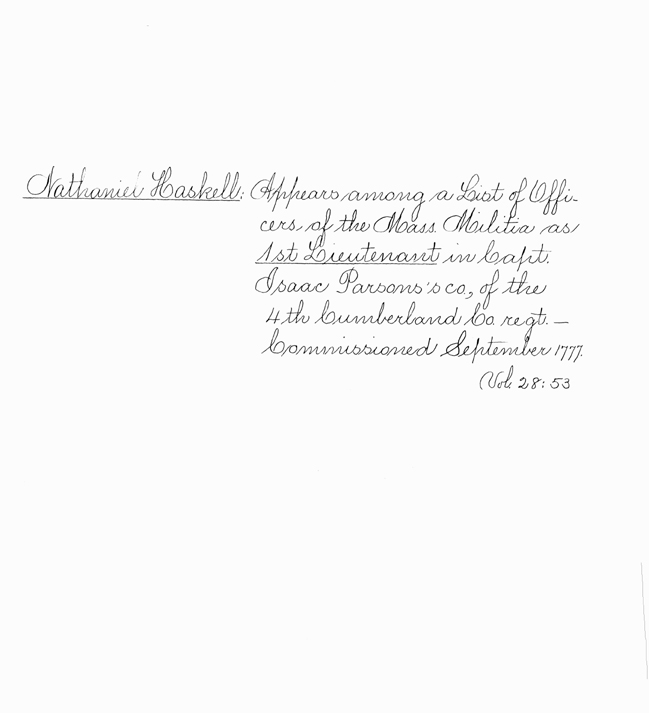 Nathaniel Haskell: Appears among a List of Offi-
cers, of the Mass. Militia as
1st Lieutenant in Capt.
Isaac Parsons's co., of the
4th Cumberland Co. regt. —
Commissioned September 1777.
Vol. 28:53